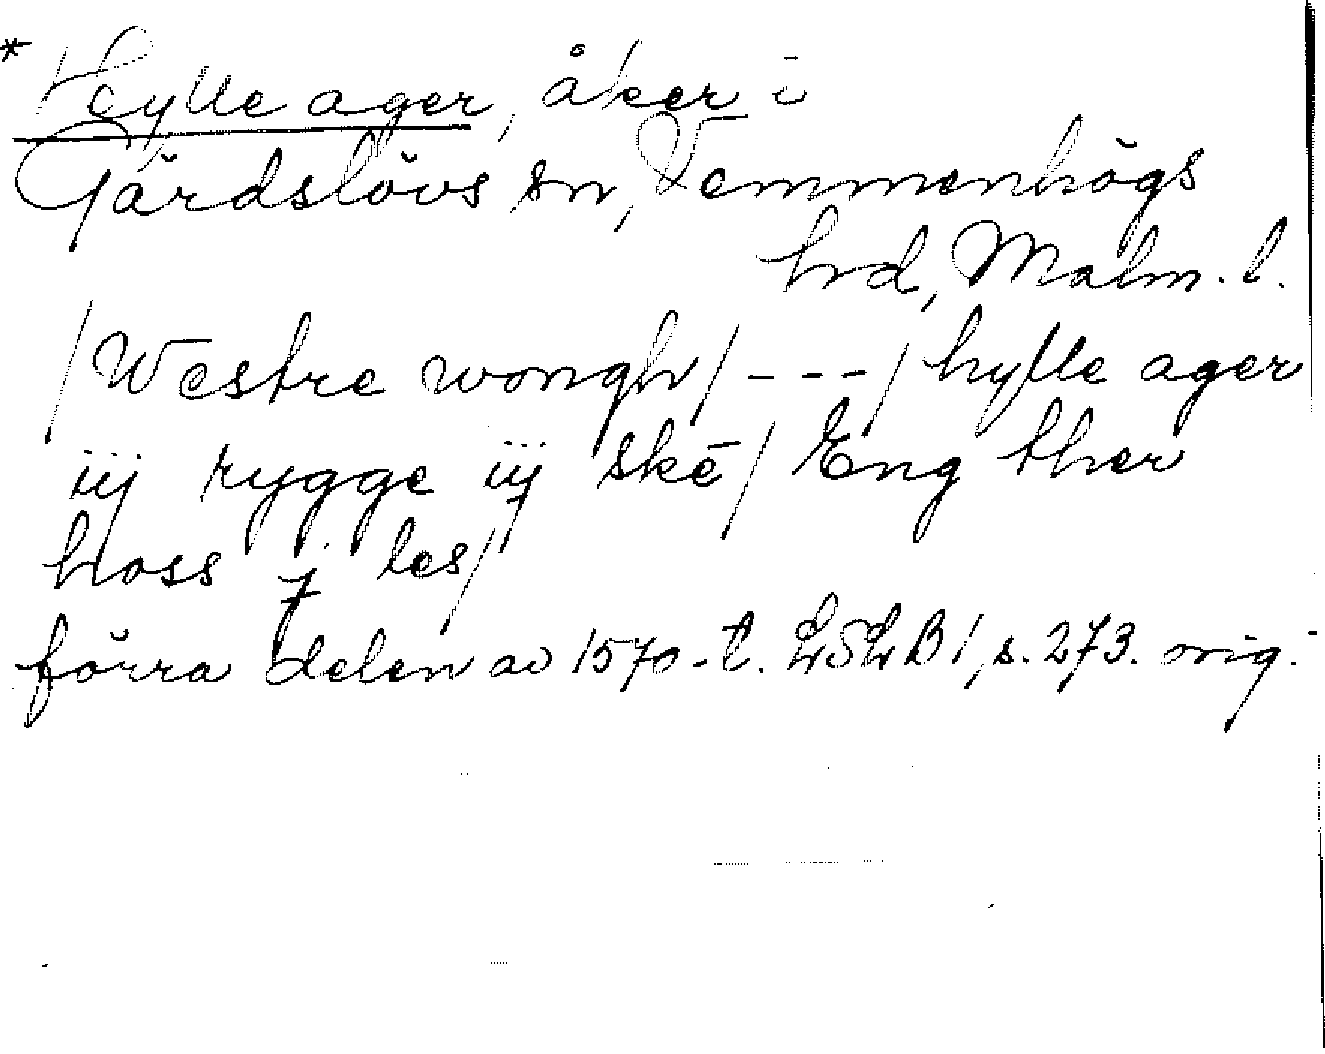 * Hylle ager, åker i
Gärdslövs sn, Vemmenhögs
hrd, Malm. l.
/Westre wongh/---/hylle ager
iij rygge iij skē/ Eng ther
hoss j les/
förra delen av 1570-t. LSLB 1, s. 273. orig.